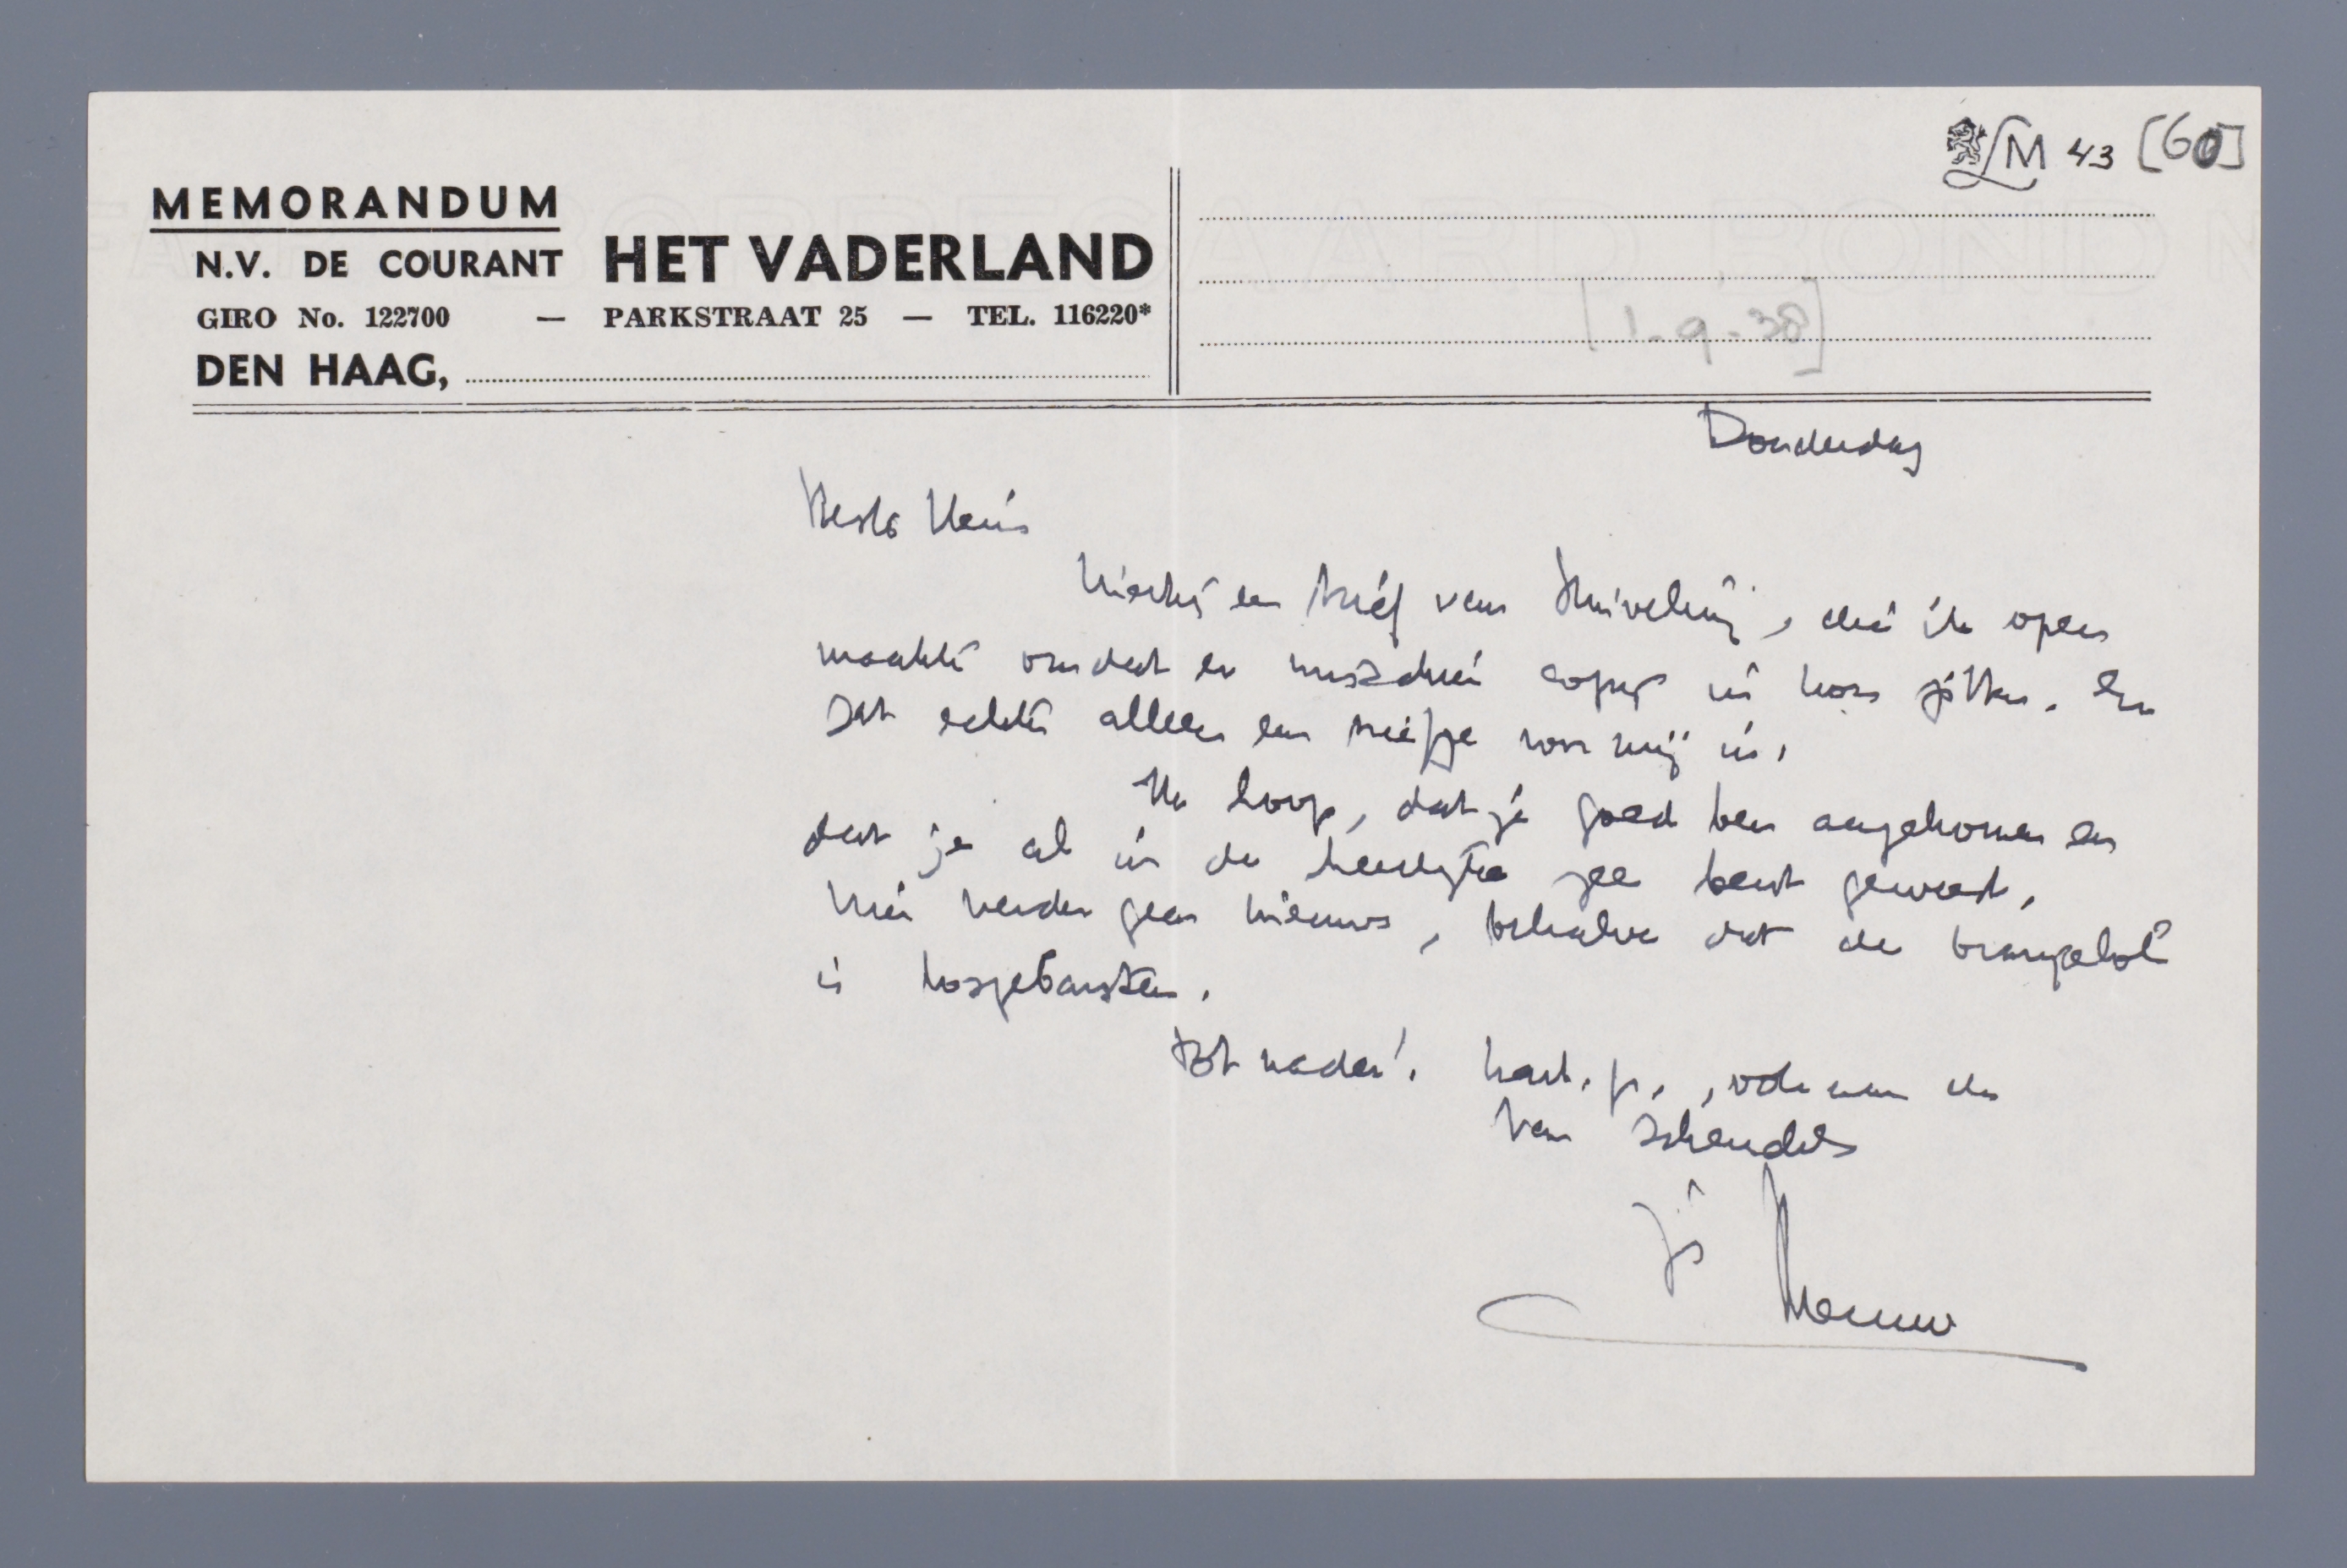 LM 43 [60]
MEMORANDUM
N.V. DE COURANT HET VADERLAND
GIRO No. 122700 — PARKSTRAAT 25 — TEL. 116220*
DEN HAAG,
[1-9-38]
Donderdag
Beste Heinz
Hierbij een brief van Stuiveling, die ik open
maakte omdat er misschien copy in kon zitten. Er
zat echter alleen een briefje voor mij in.
Ik hoop, dat je goed ben aangekomen en
dat je al in de heerlijke zee bent geweest.
Hier verder geen nieuws, behalve dat de
is losgebarsten.
Tot nader! hart. gr., ook aan de
van Schendels
je Menno